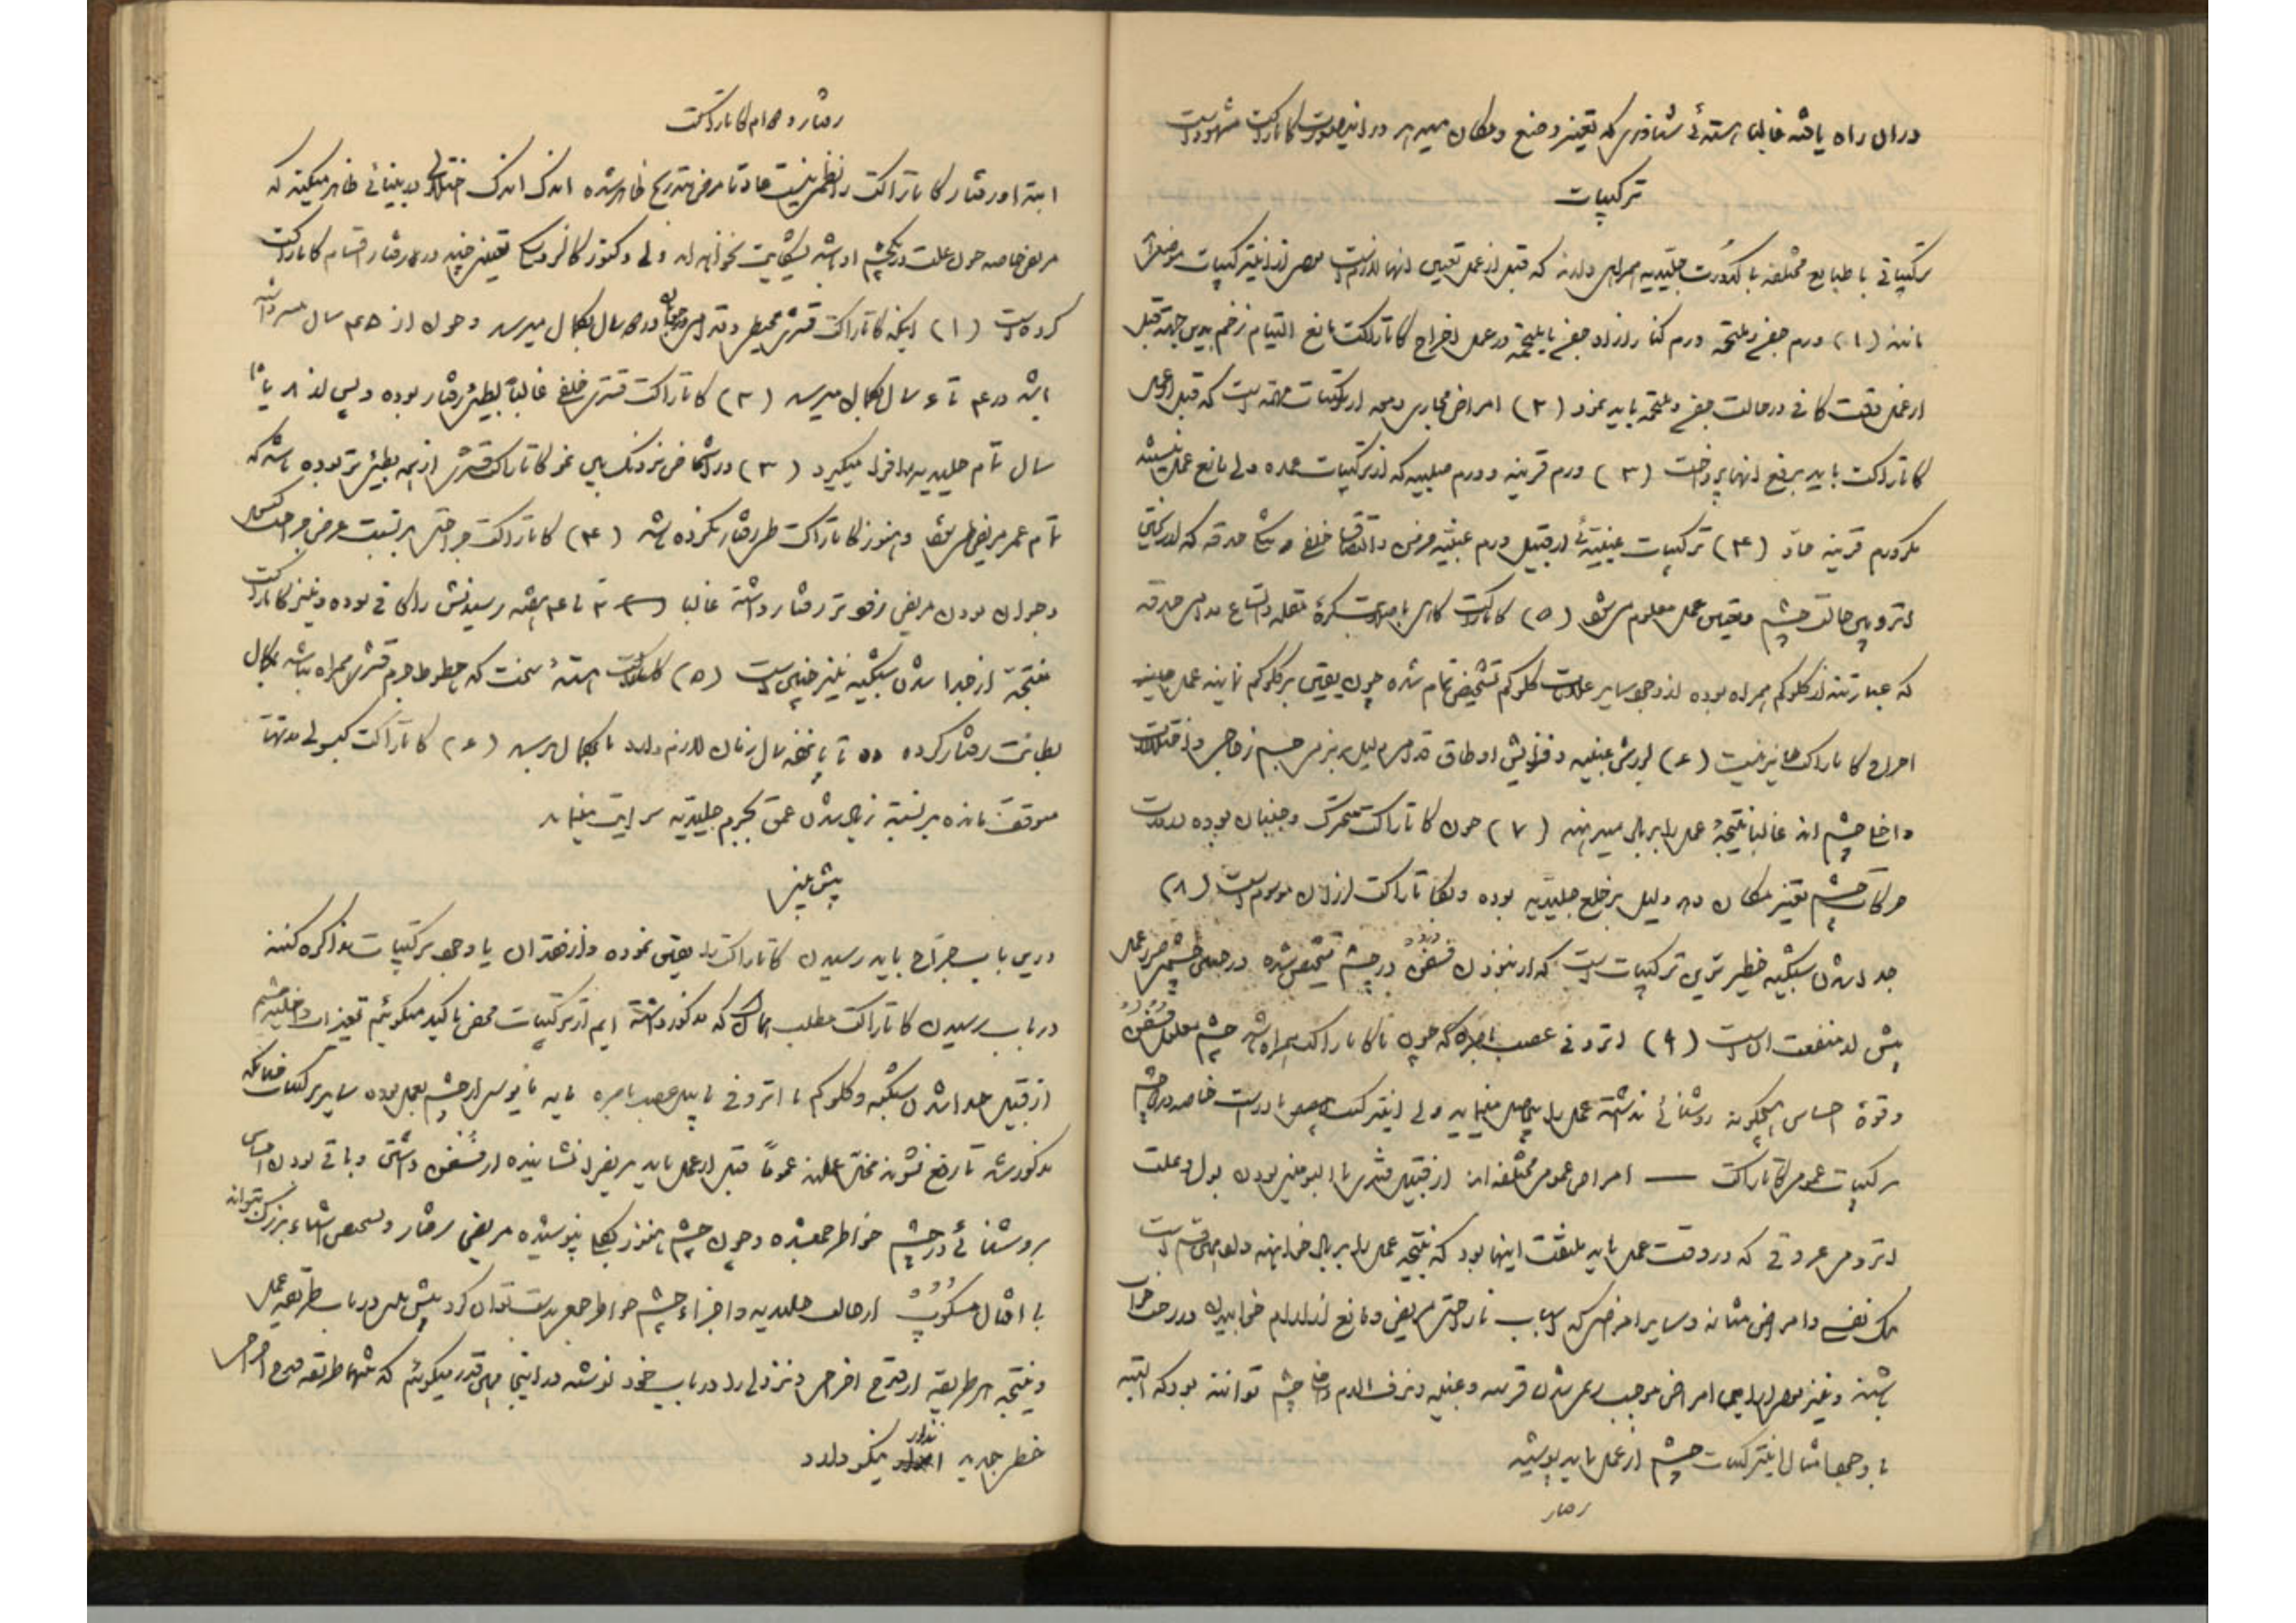 دران راه یافته غالبا هسته‌ئی شناوری که تغییر وضع و مکان میدهد و دراینصورت کاتاراکت مشهود است
ترکیبات
ترکیباتی با طبایع مختلفه با کدورت جلیدیه همراهی دارند که قبل از عمل تعیین انها لازمست بعضی از این ترکیبات موضعی
مانند (۱) ورم جفن و ملتحمه ورم کنار ازاد جفن یا ملتحمه در عمل اخراج کاتاراکت مانع التیام زخم بدین جهة قبل
از عمل دقت کافی در حالت جفن و ملتحمه باید نمود (۲) امراض مجاری دمعه از ترکیبات مهمه است که قبل از عمل
کاتاراکت باید برفع انها پرداخت (۳) ورم قرنیه و ورم صلبیه که از ترکیبات عمده ولی مانع عمل نیستند
مگر ورم قرنیه حاد (۴) ترکیبات عنبیه‌ئی از قبیل ورم عنبیه مزمن و التصاق خلفی و حدقه که از ریختن
اتروپین حالت چشم و تعیین عمل معلوم میشود (۵) کاتاراکت کاهی با صلابت کره مقله و اتساع دائمی حدقه
که عبارتند از کلوکم همراه بوده از وجود سایر علامات کلوکم تشخیص تمام شده چون یقین بر کلوکم نمایند عمل
اخراج کاتاراکت جایز نیست (۶) لرزش عنبیه و افزایش اوطاق قدامی دلیل بر نرمی جسم زجاجی و اختلالات
داخل چشم اند غالبا نتیجهٔ عمل را بر باد میدهند (۷) چون کاتاراکت متحرک و جنبان بوده و در
حرکات چشم تغییر مکان دهد دلیل بر خلع جلیدیه بوده و بکاتاراکت لرزان موسوم است (۸)
جدا شدن شبکیه خطیرترین ترکیبات است که از نبودن فسفن در چشم تشخیص شده در چنین چشم ضرر عمل
بیش از منفعت ان است (۹) اتروفی عصب باصره که چون با کاتاراکت همراه باشد چشم معلول فسفن
و قوهٔ احساس هیچگونه روشنائی نداشته عمل را بیحاصل مینماید ولی این ترکیب بسیار نادر است خاصه در دو چشم
ترکیبات عمومی کاتاراکت — امراض عمومی مختلفه اند از قبیل قندی یا البومینی بودن بول و علت
اترومی عروقی که در وقت عمل باید ملتفت اینها بود که نتیجه عمل را بر باد خواهند داد همین قسم است
تنک نفس و امراض مثانه و سایر امراضی که اسباب ناراحتی مریض و مانع از ارام خوابیدن در رختخواب
باشند و نیز بعضی از این امراض موجب قرنیه و عنبیه و نزف الدم داخل چشم توانند بود که البته
با وجود امثال این ترکیبات چشم از عمل باید پوشید
رفتار
رفتار و دوام کاتاراکت
ابتدا و رفتار کاتاراکت را نظمی نیست عادتا مرض بتدریج ظاهر شده اندک اندک اختلالی در بینائی ظاهر میکند که
مریض خاصه چون علت در یکچشم او باشد بشکایت نخواهد امد ولی دکتور کالزوسکی تعیین چند در رفتار اقسام کاتاراکت
کرده است (۱) اینکه کاتاراکت قشری محیطی در سال بکمال میرسد و چون از ۴۵ سال
باشد در ۴ تا ۶ سال بکمال میرسد (۲) کاتاراکت قشری خلفی غالبا بطیئ رفتار بوده و پس از ۸ یا
سال تمام جلیدیه را فرا میگیرد (۳) در اشخاص نزدیک بین نمو کاتاراکت قشری از همه بطیئ‌تر بوده باشد که
تمام عمر مریض طی شود و هنوز کاتاراکت طی رفتار نکرده باشد (۴) کاتاراکت جراحتی بر نسبت عرض جراحت
و جوان بودن مریض زودتر رفتار داشته غالبا ۳ تا ۴ هفته رسیدنش را کافی بوده و نیز کاتاراکت
نتیجهٔ از جدا شدن شبکیه نیز چنین است (۵) کاتاراکت هستهٔ سخت که خطوط جرم قشری همراه باشد بکمال
بطائت رفتار کرده ده تا پانزده سال زمان لازم دارد تا بکمال برسد (۶) کاتاراکت کپسولی مدتها
متوقف مانده بر نسبت زیاد شدن عمق بجرم جلیدیه سرایت مینماید
پیش بینی
درین باب جراح باید رسیدن کاتاراکت را یقین نموده و از فقدان یا وجود ترکیبات مذاکره کند
در باب رسیدن کاتاراکت مطلب همان که مذکور داشته ایم از ترکیبات محض تاکید میگوئیم تغییرات داخلیه چشم
از قبیل جدا شدن شبکیه و کلوکم یا اتروفی پاپیل عصب باصره باید مایوس از چشم بعمل بوده سایر ترکیبات چنانکه
مذکور شد تا رفع نشوند مخل عمل اند عموماً قبل از عمل باید مریض را نشانیده از فسفن داشتن و باقی بودن احساس
بروشنائی در چشم خواطرجمع شده و چون چشم هنوز بکلی نپوشیده مریض رفتار و تشخیص اشیاء بزرک تواند
با افتالمسکوپ از حالت جلیدیه و اجزاء چشم خواطر جمع بدست توان کرد پیش بینی در باب طریقه عمل
و نتیجه هر طریقه از قدح اخراجی و تنزلی را در باب خود نوشته در اینجا همین قدر میگوئیم که تنها طریقه قدح اخراجی
خطر جدید ندارد نیکو دارد